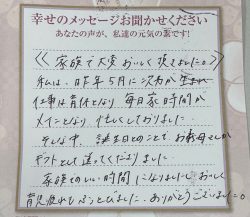 幸せのメッセージお聞かせください
あなたの声が、私達の元気の素です!
家族で大変おいしく頂きました
私は、昨年5月に次女が産まれ
仕事は育休となり 毎日家時間が
メインとなり 忙しくしておりました
そんな中、誕生日とのことで お義母さんが
ギフトとして送ってくださりました
家族でのいい時間になりましたし、おいしく
育児疲れもふっとびました。ありがとうございました。